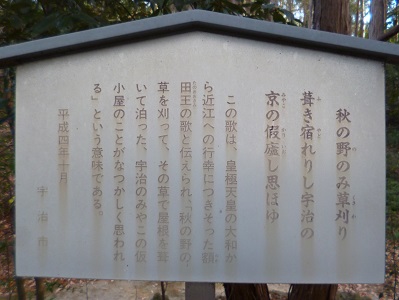 秋の野のみ草刈り
葺き宿れりし宇治の
京の假廬し思ほゆ
この歌は、皇極天皇の大和か
ら近江への行幸につきそった額
田王の歌と伝えられ、「秋の野の
草を刈って、その草で屋根を葺
いて泊った、宇治のみやこの仮
小屋のことがなつかしく思われ
る」という意味である。
平成四年十月
宇治市